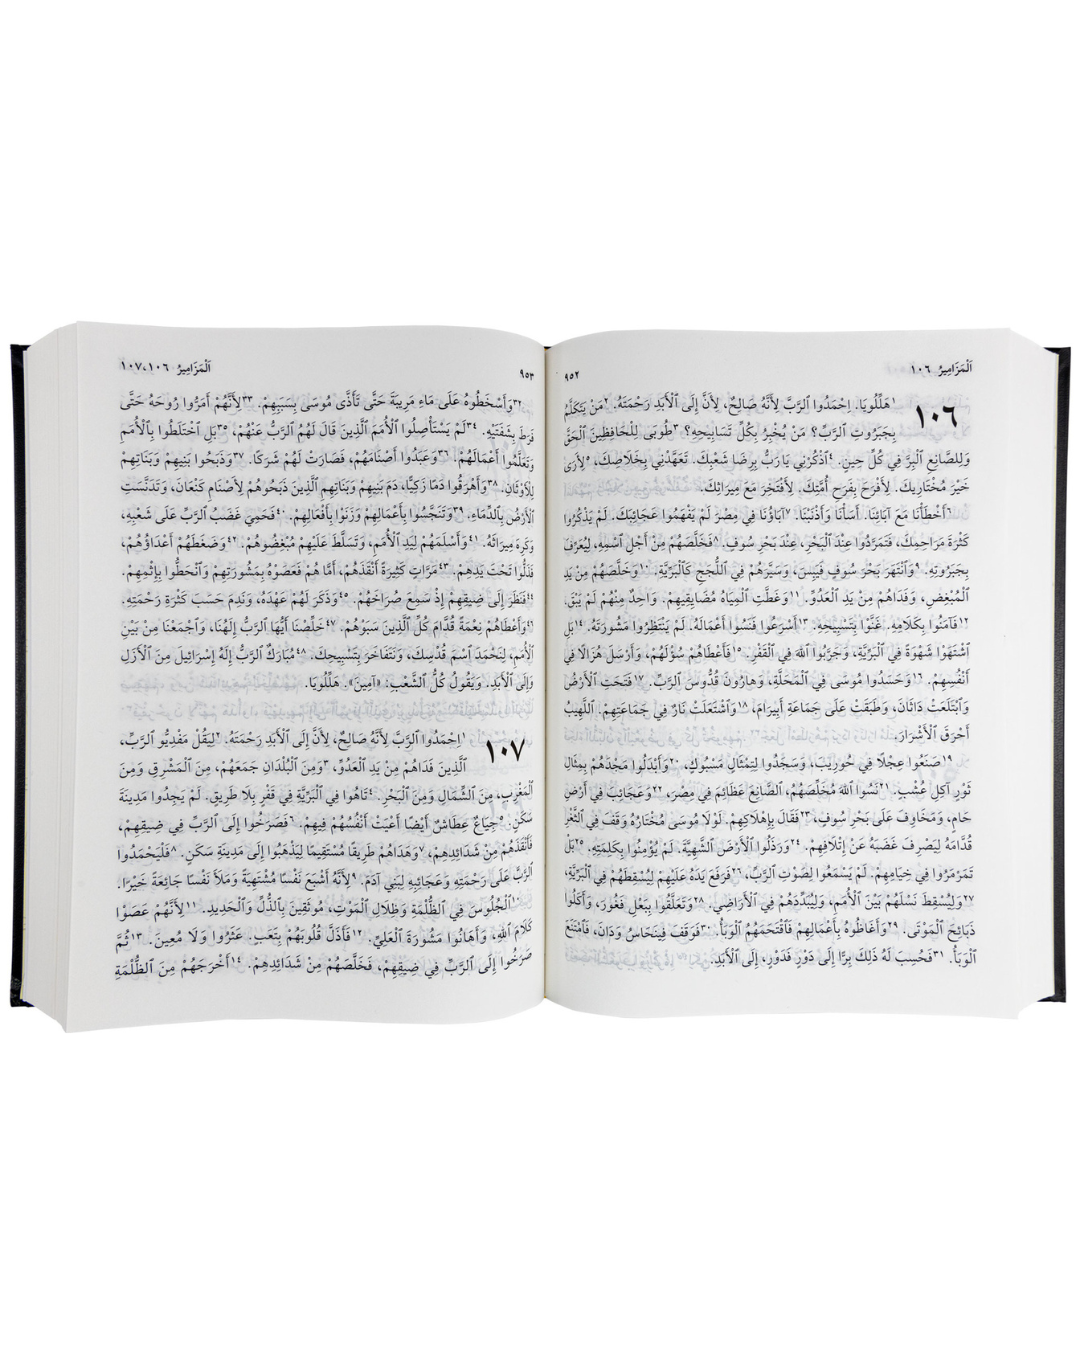 اَلْمَزَامِيرُ ١٠٦
٩٥٢
١٠٦
١هَلِّلُويَا. اِحْمَدُوا ٱلرَّبَّ لِأَنَّهُ صَالِحٌ، لِأَنَّ إِلَى ٱلْأَبَدِ رَحْمَتَهُ. ٢مَنْ يَتَكَلَّمُ
بِجَبَرُوتِ ٱلرَّبِّ؟ مَنْ يُخْبِرُ بِكُلِّ تَسَابِيحِهِ؟ ٣طُوبَى لِلْحَافِظِينَ ٱلْحَقَّ
وَلِلصَّانِعِ ٱلْبِرَّ فِي كُلِّ حِينٍ. ٤ٱذْكُرْنِي يَارَبُّ بِرِضَا شَعْبِكَ. تَعَهَّدْنِي بِخَلَاصِكَ، ٥لِأَرَى
خَيْرَ مُخْتَارِيكَ. لِأَفْرَحَ بِفَرَحِ أُمَّتِكَ. لِأَفْتَخِرَ مَعَ مِيرَاثِكَ.
٦أَخْطَأْنَا مَعَ آبَائِنَا. أَسَأْنَا وَأَذْنَبْنَا. ٧آبَاؤُنَا فِي مِصْرَ لَمْ يَفْهَمُوا عَجَائِبَكَ. لَمْ يَذْكُرُوا
كَثْرَةَ مَرَاحِمِكَ، فَتَمَرَّدُوا عِنْدَ ٱلْبَحْرِ، عِنْدَ بَحْرِ سُوفٍ. ٨فَخَلَّصَهُمْ مِنْ أَجْلِ ٱسْمِهِ، لِيُعَرِّفَ
بِجَبَرُوتِهِ. ٩وَٱنْتَهَرَ بَحْرَ سُوفٍ فَيَبِسَ، وَسَيَّرَهُمْ فِي ٱللُّجَجِ كَٱلْبَرِّيَّةِ. ١٠وَخَلَّصَهُمْ مِنْ يَدِ
ٱلْمُبْغِضِ، وَفَدَاهُمْ مِنْ يَدِ ٱلْعَدُوِّ. ١١وَغَطَّتِ ٱلْمِيَاهُ مُضَايِقِيهِمْ. وَاحِدٌ مِنْهُمْ لَمْ يَبْقَ.
١٢فَآمَنُوا بِكَلَامِهِ. غَنَّوْا بِتَسْبِيحِهِ. ١٣أَسْرَعُوا فَنَسُوا أَعْمَالَهُ. لَمْ يَنْتَظِرُوا مَشُورَتَهُ. ١٤بَلِ
ٱشْتَهَوْا شَهْوَةً فِي ٱلْبَرِّيَّةِ، وَجَرَّبُوا ٱللهَ فِي ٱلْقَفْرِ. ١٥فَأَعْطَاهُمْ سُؤْلَهُمْ، وَأَرْسَلَ هُزَالًا فِي
أَنْفُسِهِمْ. ١٦وَحَسَدُوا مُوسَى فِي ٱلْمَحَلَّةِ، وَهَارُونَ قُدُّوسَ ٱلرَّبِّ. ١٧فَتَحَتِ ٱلْأَرْضُ
وَٱبْتَلَعَتْ دَاثَانَ، وَطَبَقَتْ عَلَى جَمَاعَةِ أَبِيرَامَ، ١٨وَٱشْتَعَلَتْ نَارٌ فِي جَمَاعَتِهِمْ. ٱللَّهِيبُ
أَحْرَقَ ٱلْأَشْرَارَ.
١٩صَنَعُوا عِجْلًا فِي حُورِيبَ، وَسَجَدُوا لِتِمْثَالٍ مَسْبُوكٍ، ٢٠وَأَبْدَلُوا مَجْدَهُمْ بِمِثَالِ
ثَوْرٍ آكِلِ عُشْبٍ. ٢١نَسُوا ٱللهَ مُخَلِّصَهُمُ، ٱلصَّانِعَ عَظَائِمَ فِي مِصْرَ، ٢٢وَعَجَائِبَ فِي أَرْضِ
حَامٍ، وَمَخَاوِفَ عَلَى بَحْرِ سُوفٍ، ٢٣فَقَالَ بِإِهْلَاكِهِمْ. لَوْلَا مُوسَى مُخْتَارُهُ وَقَفَ فِي ٱلثَّغْرِ
قُدَّامَهُ لِيَصْرِفَ غَضَبَهُ عَنْ إِتْلَافِهِمْ. ٢٤وَرَذَلُوا ٱلْأَرْضَ ٱلشَّهِيَّةَ. لَمْ يُؤْمِنُوا بِكَلِمَتِهِ. ٢٥بَلْ
تَمَرْمَرُوا فِي خِيَامِهِمْ. لَمْ يَسْمَعُوا لِصَوْتِ ٱلرَّبِّ، ٢٦فَرَفَعَ يَدَهُ عَلَيْهِمْ لِيُسْقِطَهُمْ فِي ٱلْبَرِّيَّةِ،
٢٧وَلِيُسْقِطَ نَسْلَهُمْ بَيْنَ ٱلْأُمَمِ، وَلِيُبَدِّدَهُمْ فِي ٱلْأَرَاضِي. ٢٨وَتَعَلَّقُوا بِبَعْلِ فَغُورَ، وَأَكَلُوا
ذَبَائِحَ ٱلْمَوْتَى. ٢٩وَأَغَاظُوهُ بِأَعْمَالِهِمْ فَٱقْتَحَمَهُمُ ٱلْوَبَأُ. ٣٠فَوَقَفَ فِينَحَاسُ وَدَانَ، فَٱمْتَنَعَ
ٱلْوَبَأُ. ٣١فَحُسِبَ لَهُ ذَلِكَ بِرًّا إِلَى دَوْرٍ فَدَوْرٍ، إِلَى ٱلْأَبَدِ.
٩٥٣
اَلْمَزَامِيرُ ١٠٦، ١٠٧
٣٢وَأَسْخَطُوهُ عَلَى مَاءِ مَرِيبَةَ حَتَّى تَأَذَّى مُوسَى بِسَبَبِهِمْ. ٣٣لِأَنَّهُمْ أَمَرُّوا رُوحَهُ حَتَّى
فَرَطَ بِشَفَتَيْهِ. ٣٤لَمْ يَسْتَأْصِلُوا ٱلْأُمَمَ ٱلَّذِينَ قَالَ لَهُمُ ٱلرَّبُّ عَنْهُمْ، ٣٥بَلِ ٱخْتَلَطُوا بِٱلْأُمَمِ
وَتَعَلَّمُوا أَعْمَالَهُمْ. ٣٦وَعَبَدُوا أَصْنَامَهُمْ، فَصَارَتْ لَهُمْ شَرَكًا. ٣٧وَذَبَحُوا بَنِيهِمْ وَبَنَاتِهِمْ
لِلْأَوْثَانِ. ٣٨وَأَهْرَقُوا دَمًا زَكِيًّا، دَمَ بَنِيهِمْ وَبَنَاتِهِمِ ٱلَّذِينَ ذَبَحُوهُمْ لِأَصْنَامِ كَنْعَانَ، وَتَدَنَّسَتِ
ٱلْأَرْضُ بِٱلدِّمَاءِ. ٣٩وَتَنَجَّسُوا بِأَعْمَالِهِمْ وَزَنَوْا بِأَفْعَالِهِمْ. ٤٠فَحَمِيَ غَضَبُ ٱلرَّبِّ عَلَى شَعْبِهِ،
وَكَرِهَ مِيرَاثَهُ. ٤١وَأَسْلَمَهُمْ لِيَدِ ٱلْأُمَمِ، وَتَسَلَّطَ عَلَيْهِمْ مُبْغِضُوهُمْ. ٤٢وَضَغَطَهُمْ أَعْدَاؤُهُمْ،
فَذَلُّوا تَحْتَ يَدِهِمْ. ٤٣مَرَّاتٍ كَثِيرَةً أَنْقَذَهُمْ، أَمَّا هُمْ فَعَصَوْهُ بِمَشُورَتِهِمْ وَٱنْحَطُّوا بِإِثْمِهِمْ.
٤٤فَنَظَرَ إِلَى ضِيقِهِمْ إِذْ سَمِعَ صُرَاخَهُمْ. ٤٥وَذَكَرَ لَهُمْ عَهْدَهُ، وَنَدِمَ حَسَبَ كَثْرَةِ رَحْمَتِهِ.
٤٦وَأَعْطَاهُمْ نِعْمَةً قُدَّامَ كُلِّ ٱلَّذِينَ سَبَوْهُمْ. ٤٧خَلِّصْنَا أَيُّهَا ٱلرَّبُّ إِلَهُنَا، وَٱجْمَعْنَا مِنْ بَيْنِ
ٱلْأُمَمِ، لِنَحْمَدَ ٱسْمَ قُدْسِكَ، وَنَتَفَاخَرَ بِتَسْبِيحِكَ. ٤٨مُبَارَكٌ ٱلرَّبُّ إِلَهُ إِسْرَائِيلَ مِنَ ٱلْأَزَلِ
وَإِلَى ٱلْأَبَدِ. وَيَقُولُ كُلُّ ٱلشَّعْبِ: «آمِينَ». هَلِّلُويَا.
١٠٧
١اِحْمَدُوا ٱلرَّبَّ لِأَنَّهُ صَالِحٌ، لِأَنَّ إِلَى ٱلْأَبَدِ رَحْمَتَهُ. ٢لِيَقُلْ مَفْدِيُّو ٱلرَّبِّ،
ٱلَّذِينَ فَدَاهُمْ مِنْ يَدِ ٱلْعَدُوِّ، ٣وَمِنَ ٱلْبُلْدَانِ جَمَعَهُمْ، مِنَ ٱلْمَشْرِقِ وَمِنَ
ٱلْمَغْرِبِ، مِنَ ٱلشِّمَالِ وَمِنَ ٱلْبَحْرِ. ٤تَاهُوا فِي ٱلْبَرِّيَّةِ فِي قَفْرٍ بِلَا طَرِيقٍ. لَمْ يَجِدُوا مَدِينَةَ
سَكَنٍ. ٥جِيَاعٌ عِطَاشٌ أَيْضًا أَعْيَتْ أَنْفُسُهُمْ فِيهِمْ. ٦فَصَرَخُوا إِلَى ٱلرَّبِّ فِي ضِيقِهِمْ،
فَأَنْقَذَهُمْ مِنْ شَدَائِدِهِمْ، ٧وَهَدَاهُمْ طَرِيقًا مُسْتَقِيمًا لِيَذْهَبُوا إِلَى مَدِينَةِ سَكَنٍ. ٨فَلْيَحْمَدُوا
ٱلرَّبَّ عَلَى رَحْمَتِهِ وَعَجَائِبِهِ لِبَنِي آدَمَ. ٩لِأَنَّهُ أَشْبَعَ نَفْسًا مُشْتَهِيَةً وَمَلَأَ نَفْسًا جَائِعَةً خَيْرًا.
١٠ٱلْجُلُوسَ فِي ٱلظُّلْمَةِ وَظِلَالِ ٱلْمَوْتِ، مُوثَقِينَ بِٱلذُّلِّ وَٱلْحَدِيدِ. ١١لِأَنَّهُمْ عَصَوْا
كَلَامَ ٱللهِ، وَأَهَانُوا مَشُورَةَ ٱلْعَلِيِّ. ١٢فَأَذَلَّ قُلُوبَهُمْ بِتَعَبٍ. عَثَرُوا وَلَا مُعِينَ. ١٣ثُمَّ
صَرَخُوا إِلَى ٱلرَّبِّ فِي ضِيقِهِمْ، فَخَلَّصَهُمْ مِنْ شَدَائِدِهِمْ. ١٤أَخْرَجَهُمْ مِنَ ٱلظُّلْمَةِ